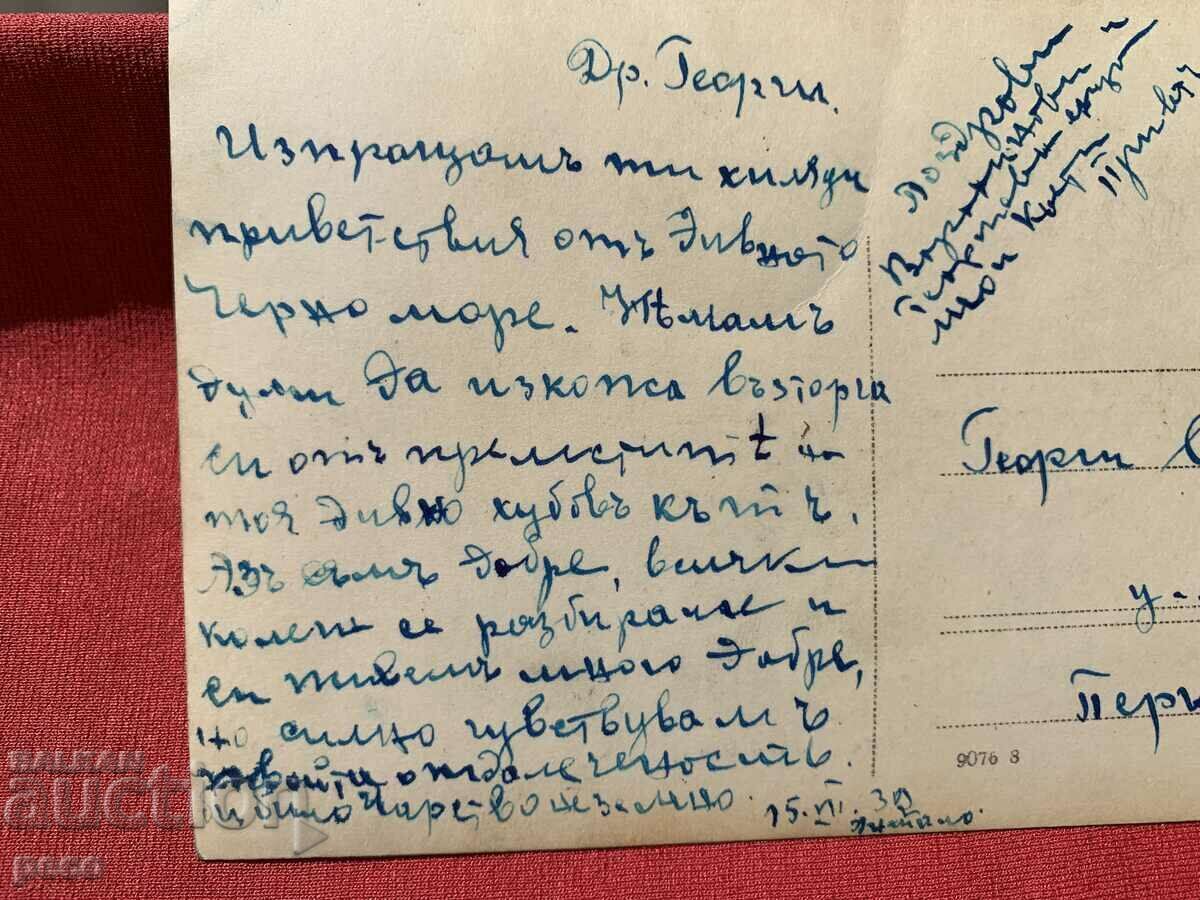 Др. Георги.
Изпращамъ ти хиляди
приветствия отъ дивното
Черно море. Нѣмамъ
думи да изкажа възторга
си отъ прелеститѣ на
тоя дивно хубавъ кътъ.
Азъ съмъ добре, всички
колеги се разбираме и
си живеемъ много добре,
но силно чувствувамъ
твоята отдалеченость.
Царство неземно.
15. 
Поздрави
и
Кети
Приветъ
Георги
у.
Перн
9076 8
BALKAN
auction
poco